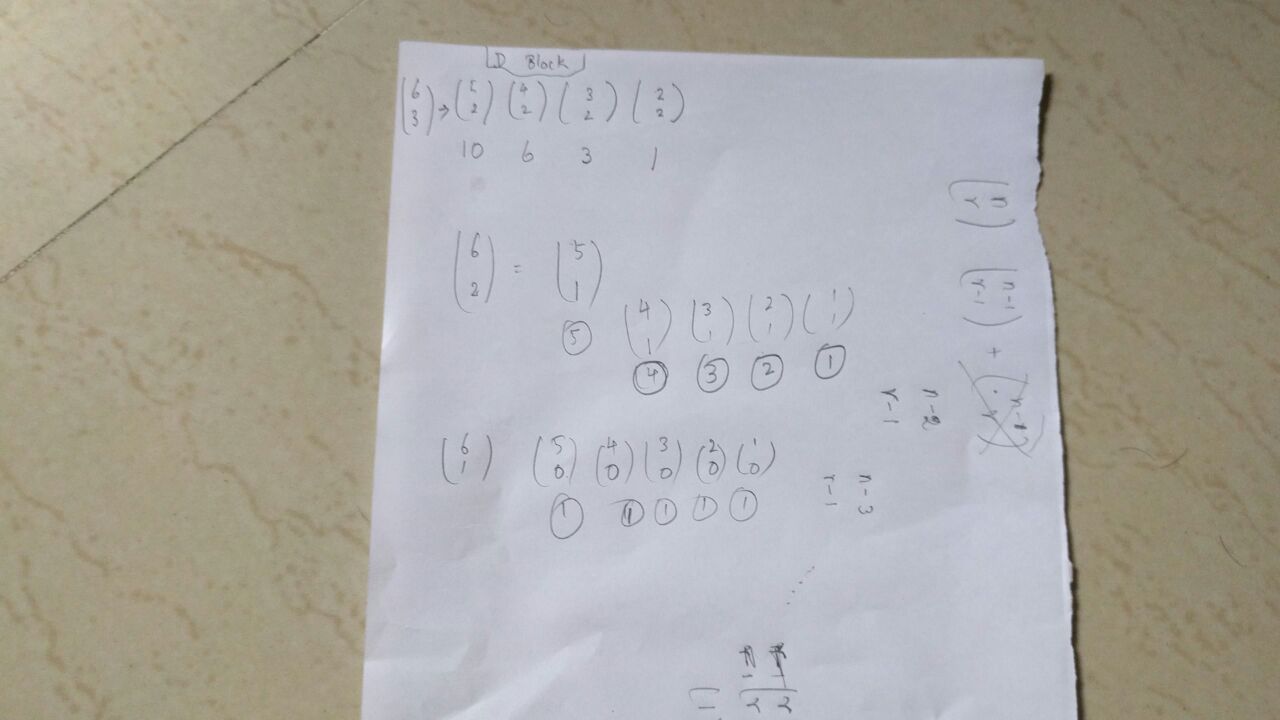 D Block
(6 3) → (5 2) (4 2) (3 2) (2 2)
10 6 3 1
(6 2) = (5 1)
(4 1) (3 1) (2 1) (1 1)
5 4 3 2 1
(6 1) (5 0) (4 0) (3 0) (2 0) (1 0)
1 1 1 1 1
(n r)
(n-1 r-1) +
n-2
r-1
n-3
r-1
......